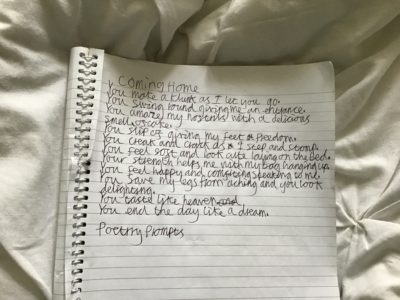 Coming Home
You make a klunk as I let you go.
You swing round giving me an entrance.
You amaze my nostrils with a delicious
smell of cake.
You slip off giving my feet freedom.
You creak and crack as I step and stomp.
You feel soft and look cute laying on the bed.
Your strength helps me with my bag hanging up.
You feel happy and comforting speaking to me.
You save my legs from aching and you look
delighting.
You taste like heaven
You end the day like a dream.
Poetry Prompts